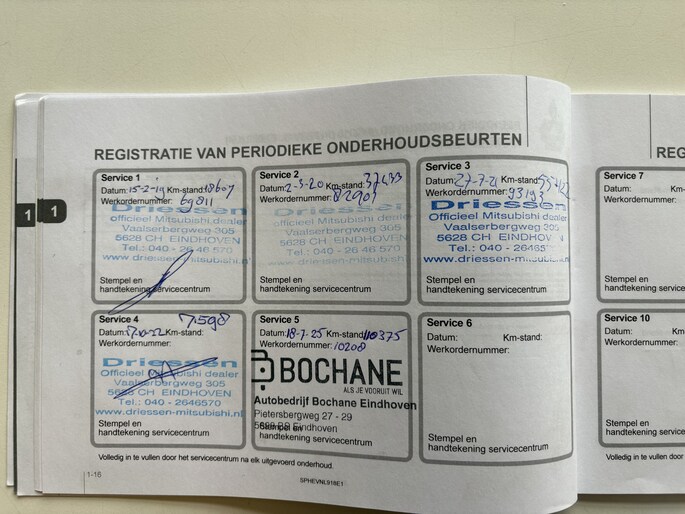 REGISTRATIE VAN PERIODIEKE ONDERHOUDSBEURTEN
Service 1
Datum: 15-2-19 Km-stand: 18607
Werkordernummer: 69811
Driessen
Officieel Mitsubishi dealer
Vaalserbergweg 305
5628 CH EINDHOVEN
Tel.: 040 - 26 46 570
www.driessen-mitsubishi.nl
Stempel en
handtekening servicecentrum
Service 2
Datum: 2-3-20 Km-stand:
Werkordernummer: 82903
Driessen
Officieel Mitsubishi dealer
Vaalserbergweg 305
5628 CH EINDHOVEN
Tel.: 040 - 26 46 570
www.driessen-mitsubishi
Stempel en
handtekening servicecentrum
Service 3
Datum: 27-7-21 Km-stand:
Werkordernummer: 93193
Driessen
Officieel Mitsubishi dealer
Vaalserbergweg 305
5628 CH EINDHOVEN
Tel.: 040 - 26465
www.driessen-mitsubishi
Stempel en
handtekening servicecentrum
Service 4
7598
Datum: Km-stand:
Werkordernummer:
Driessen
Officieel Mitsubishi dealer
Vaalserbergweg 305
5628 CH EINDHOVEN
Tel.: 040 - 2646570
www.driessen-mitsubishi.nl
Stempel en
handtekening servicecentrum
Service 5
Datum: 18-7-25 Km-stand: 110375
Werkordernummer: 10208
BOCHANE
ALS JE VOORUIT WIL
Autobedrijf Bochane Eindhoven
Pietersbergweg 27 - 29
Stempel en
Eindhoven
handtekening servicecentrum
Service 6
Datum: Km-stand:
Werkordernummer:
Stempel en
handtekening servicecentrum
Volledig in te vullen door het servicecentrum na elk uitgevoerd onderhoud.
1-16
SPHEVNL918E1
1
1
REG
Service 7
Datum:
Werkordernummer:
Stempel en
handtekening servicecentrum
Service 10
Datum:
Werkordernummer:
Stempel en
handtekening servicecentrum
Volledig in te vullen door